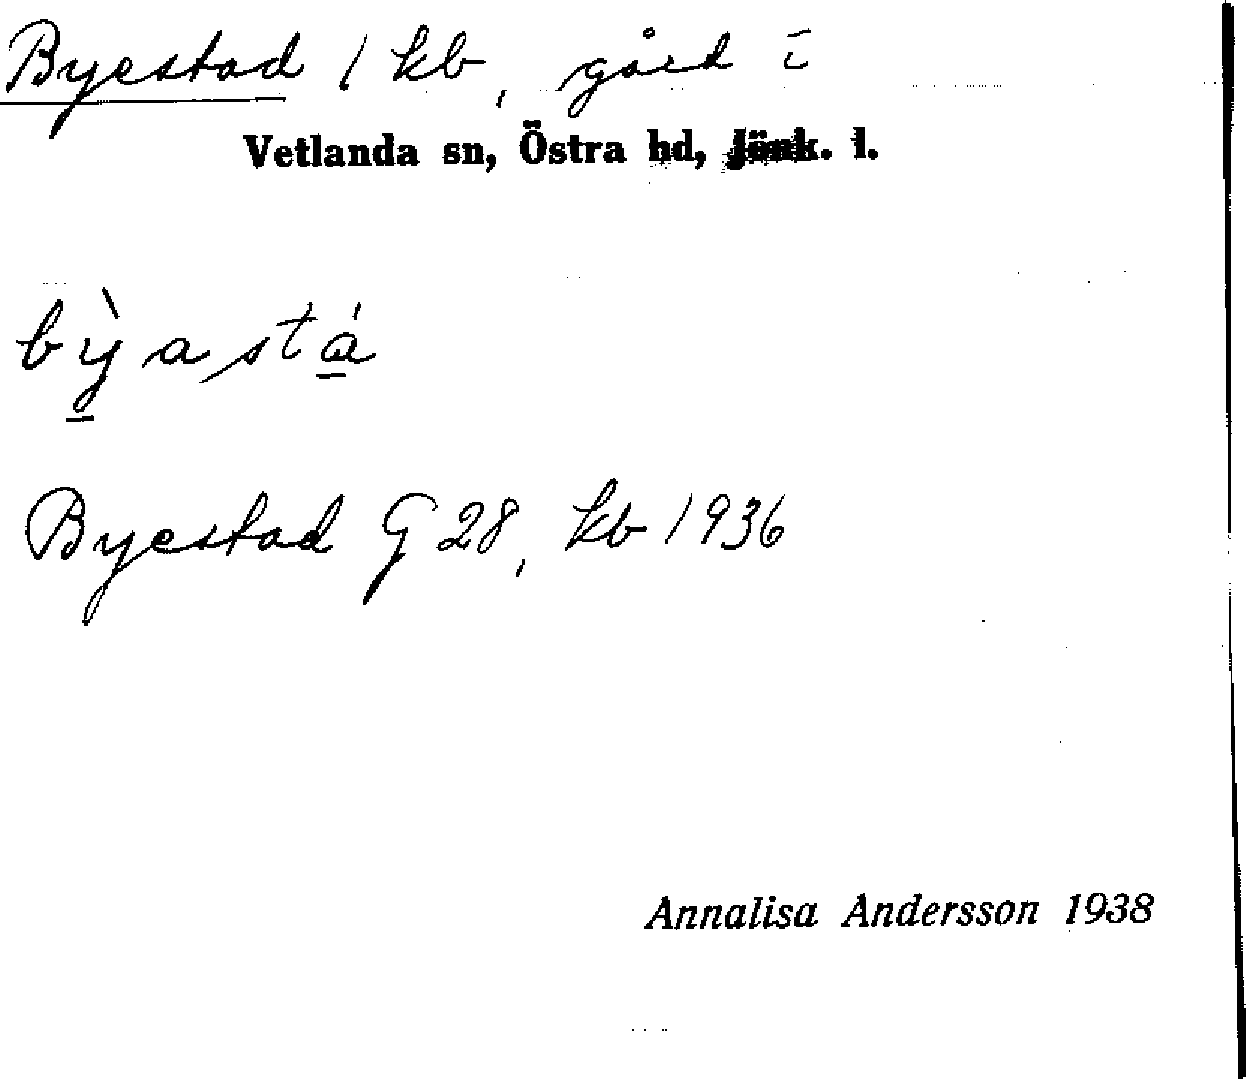 Byestad / kb, gård i
Vetlanda sn, Östra hd, Jönk. l.
bỳastá
Byestad G 28, kb 1936
Annalisa Andersson 1938